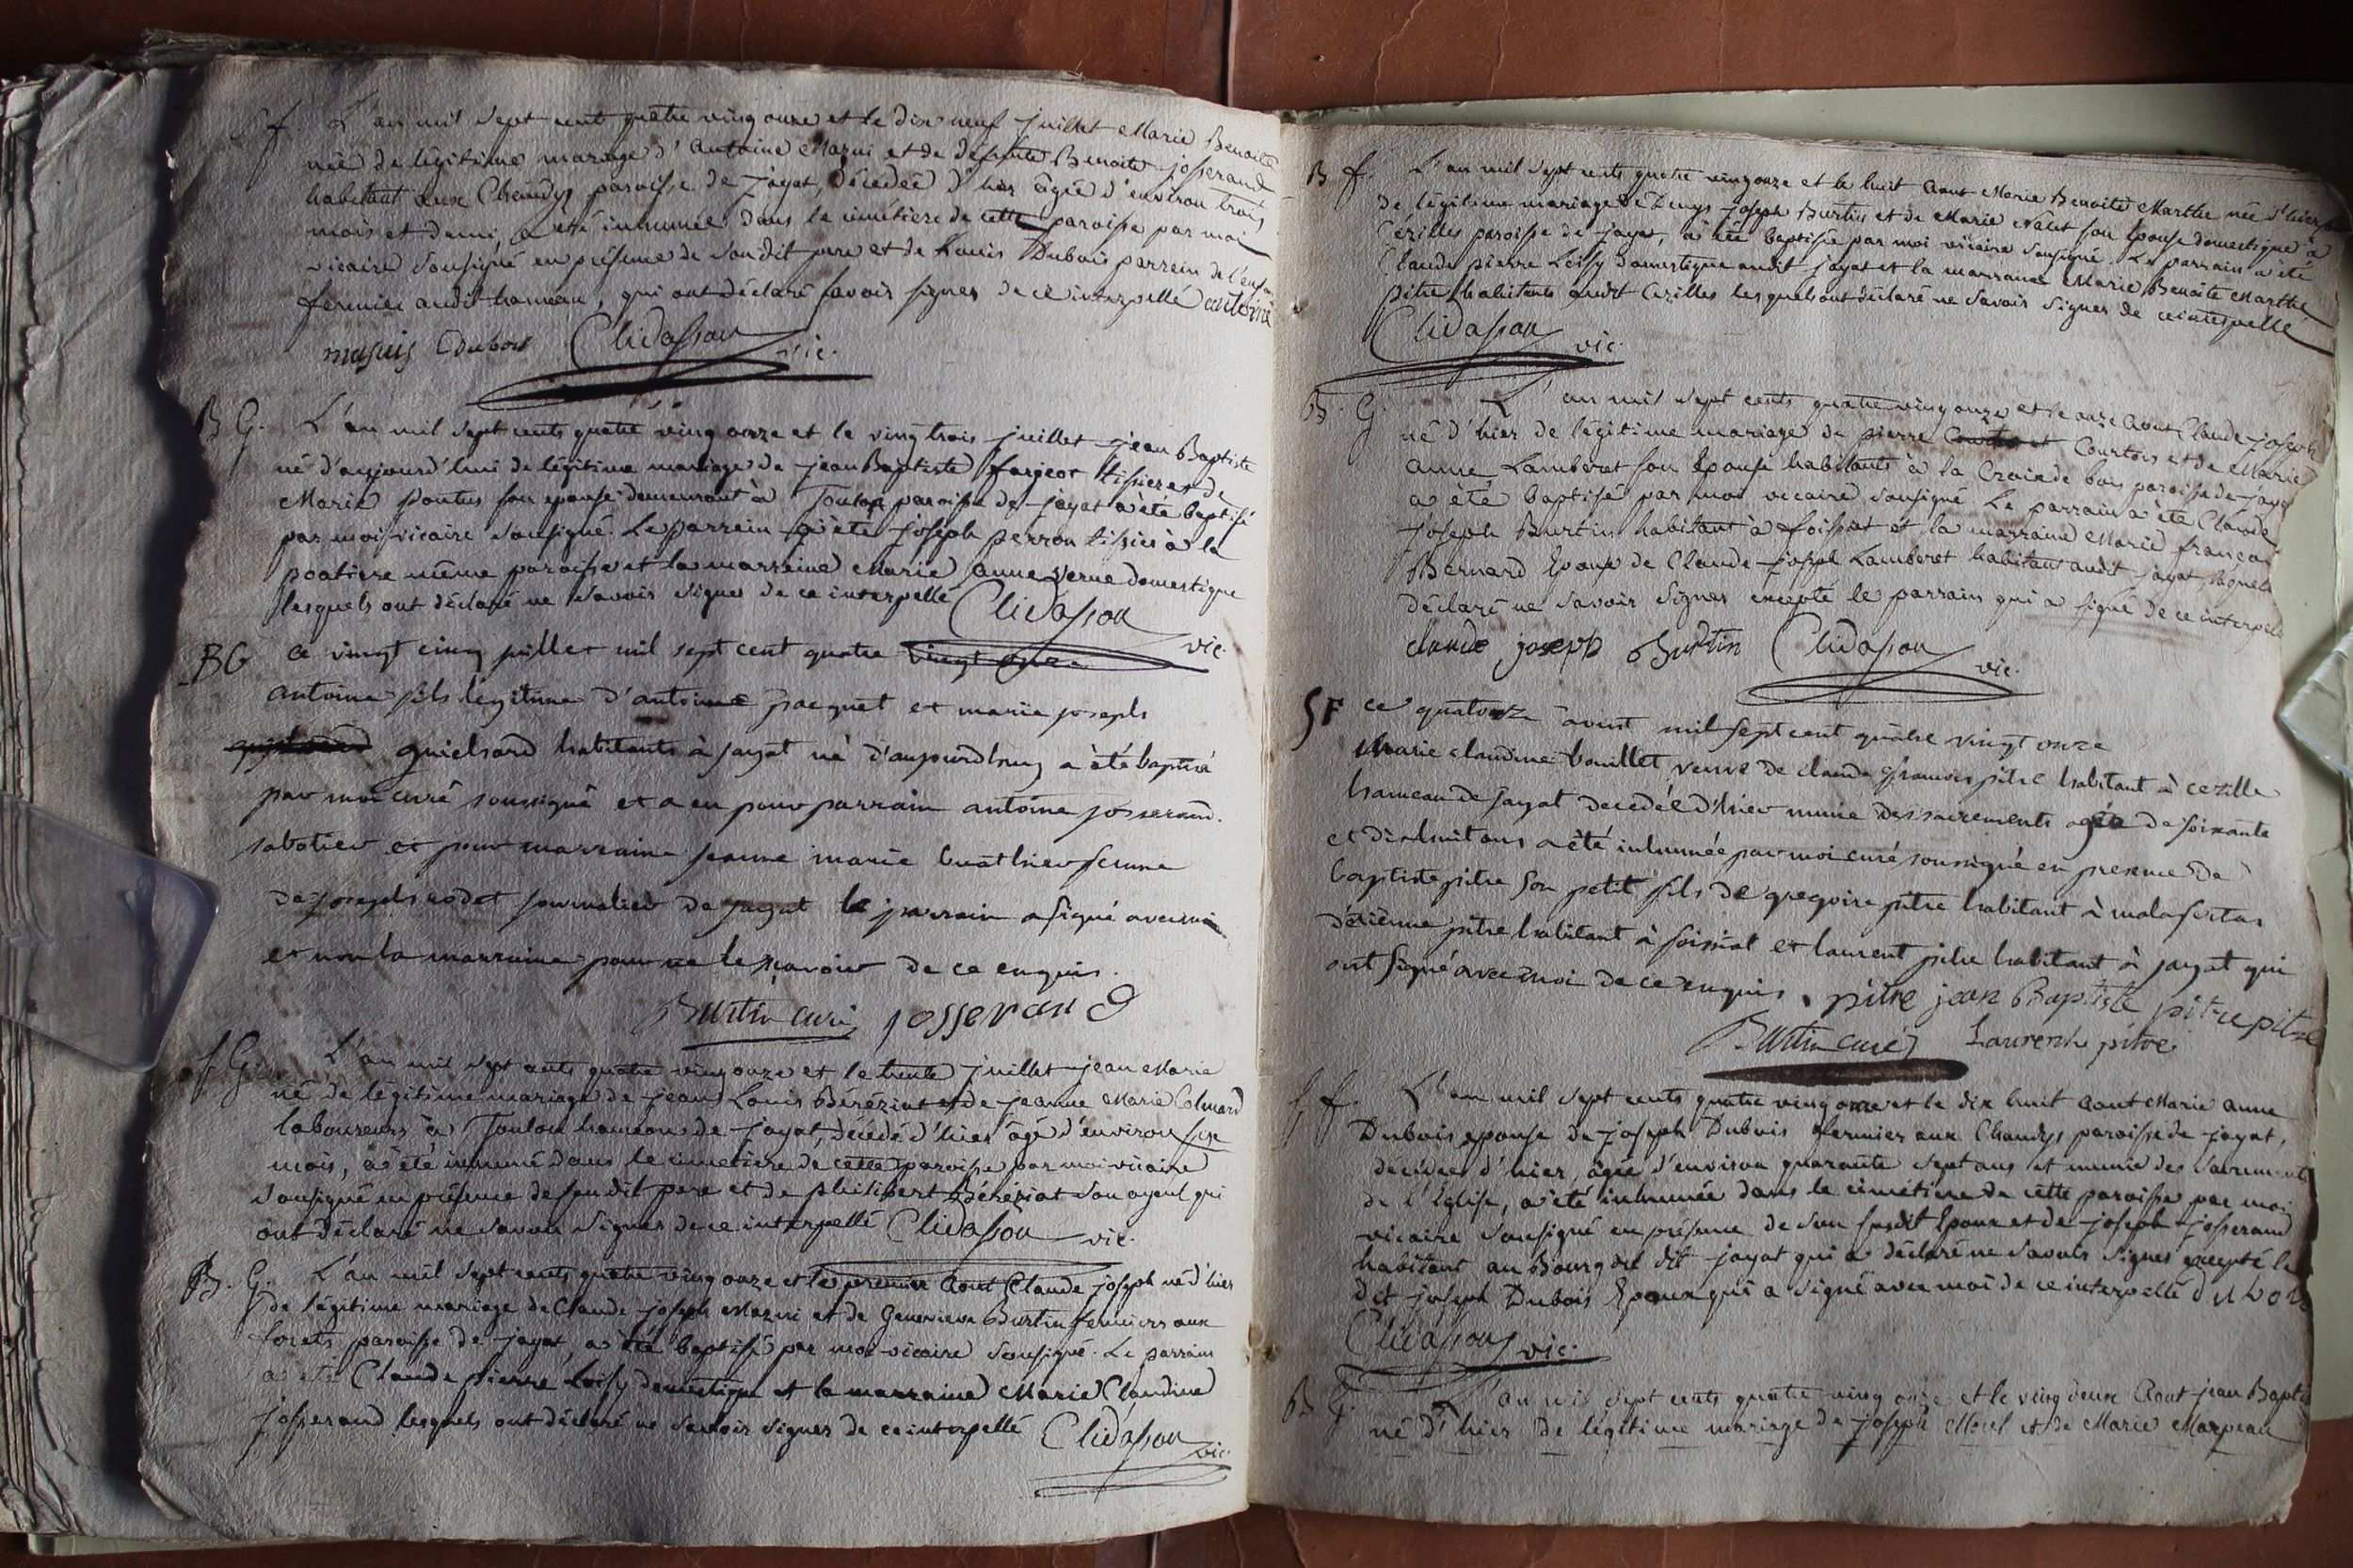 S f. L'an mil sept cent quatre ving onze et le dix neuf juillet Marie Benoite
née de légitime mariage d'Antoine Mazui et de défunte Benoite josserand
habitant aux Chandys paroisse de jayat, décedée d'hier âgée d'environ trois
mois et demi, a été inhumée dans le cimétiere de cette paroisse par moi
vicaire sousigné en présence de son dit pere et de Louis Dubois parrein de l'enfan
fermier audit hameau, qui ont déclaré savoir signer de ce interpellé antoine
masuis Dubois Clidasson vic.
B G. L'an mil sept cents quatre ving onze et le ving trois juillet jean Baptiste
né d'aujourd'hui de légitime mariage de jean Baptiste fargeot tissier et de
Marie Pontus son epouse demeurant à Toulon paroisse de jayat a été baptisé
par moi vicaire sousigné. Le parrein a été joseph perron tissier à la
poatiere même paroisse et la marreine Marie anne verne domestique
lesquels ont déclaré ne savoir signer de ce interpellé Clidasson
vic.
BG ce vingt cinq juillet mil sept cent quatre vingt onze
antoine fils légitime d'antoine pacquet et marie joseph
guichard habitants à jayat né d'aujourdhuy a été baptisé
par moi curé soussigné et a eu pour parrain antoine josserand
sabotier et pour marraine jeanne marie buathier femme
de joseph rodet journalier de jayat le parrain a signé avec moi
et non la marraine pour ne le scavoir de ce enquis.
Burtin curé josserand
S G. L'an mil sept cents quatre ving onze et le trente juillet jean Marie
né de légitime mariage de jean Louis Béréziat et de jeanne Marie Colmard
laboureurs à Toulon hameau de jayat, décédé d'hier âgé d'environ six
mois, a été inhumé dans le cimetiere de cette paroisse par moi vicaire
sousigné en présence de son dit pere et de philibert Béréziat son ayeul qui
ont déclaré ne savoir signer de ce interpellé Clidasson vic.
B. G. L'an mil sept cents quatre ving onze et le premier Aout Claude joseph né d'hier
de légitime mariage de Claude joseph Mazui et de Genevieve Burtin fermiers aux
forets paroisse de jayat, a été baptisé par moi vicaire sousigné. Le parrain
a été Claude pierre Loisy domestique et la marraine Marie Claudine
josserand lesquels ont déclaré ne savoir signer de ce interpellé Clidasson
vic.
B f. L'an mil sept cents quatre ving onze et le huit Aout Marie Benoite Marthe née d'hier
de légitime mariage de Denys joseph Burtin et de Marie Nalet son épouse domestique à
Cézilles paroisse de jayat, a été baptisée par moi vicaire sousigné. Le parrain a été
Claude pierre Loisy domestique audit jayat et la marraine Marie Benoite Marthe
pitre habitants audit Cezilles lesquels ont déclaré ne savoir signer de ce interpellé
Clidasson vic.
B. G. L'an mil sept cents quatre ving onze et le onze Aout Claude joseph
né d'hier de légitime mariage de pierre Courtois et de Marie
anne Lamberet son épouse habitants à la Croix de bois paroisse de jayat
a été baptisé par moi vicaire sousigné Le parrain a été Claude
joseph Burtin habitant à foissiat et la marraine Marie françoi
Bernard épouse de Claude joseph Lamberet habitant audit jayat, lesquels
déclaré ne savoir signer excepté le parrain qui a signé de ce interpellé
claude joseph Burtin Clidasson vic.
SF ce quatorze aoust mil sept cent quatre vingt onze
Marie claudine bouillet veuve de claude françois pitre habitant à cezille
hameau de jayat decedée d'hier munie des sacrements agée de soixante
et dixhuit ans a été inhumée par moi curé soussigné en presence de
baptiste pitre son petit fils de gregoire pitre habitant à malafretas
d'étienne pitre habitant à foissiat et laurent pitre habitant à jayat qui
ont signé avec moi de ce enquis. pitre jean Baptiste pitre pitre
Burtin curé Laurent pitre
S f. L'an mil sept cents quatre ving onze et le dix huit Aout Marie anne
Dubois epouse de joseph Dubois fermier aux Chandys paroisse de jayat,
décédée d'hier, âgée d'environ quarante sept ans et munie des sacrements
de l'église, a été inhumée dans le cimétiere de cette paroisse par moi
vicaire sousigné en présence de son susdit époux et de joseph josserand
habitant au Bourg du dit jayat qui a déclaré ne savoir signer excepté le
dit joseph Dubois époux qui a signé avec moi de ce interpellé dubois
Clidasson vic.
B G. L'an mil sept cents quatre ving onze et le ving deux Aout jean Baptis
né d'hier de légitime mariage de joseph Morel et de Marie Marpeau